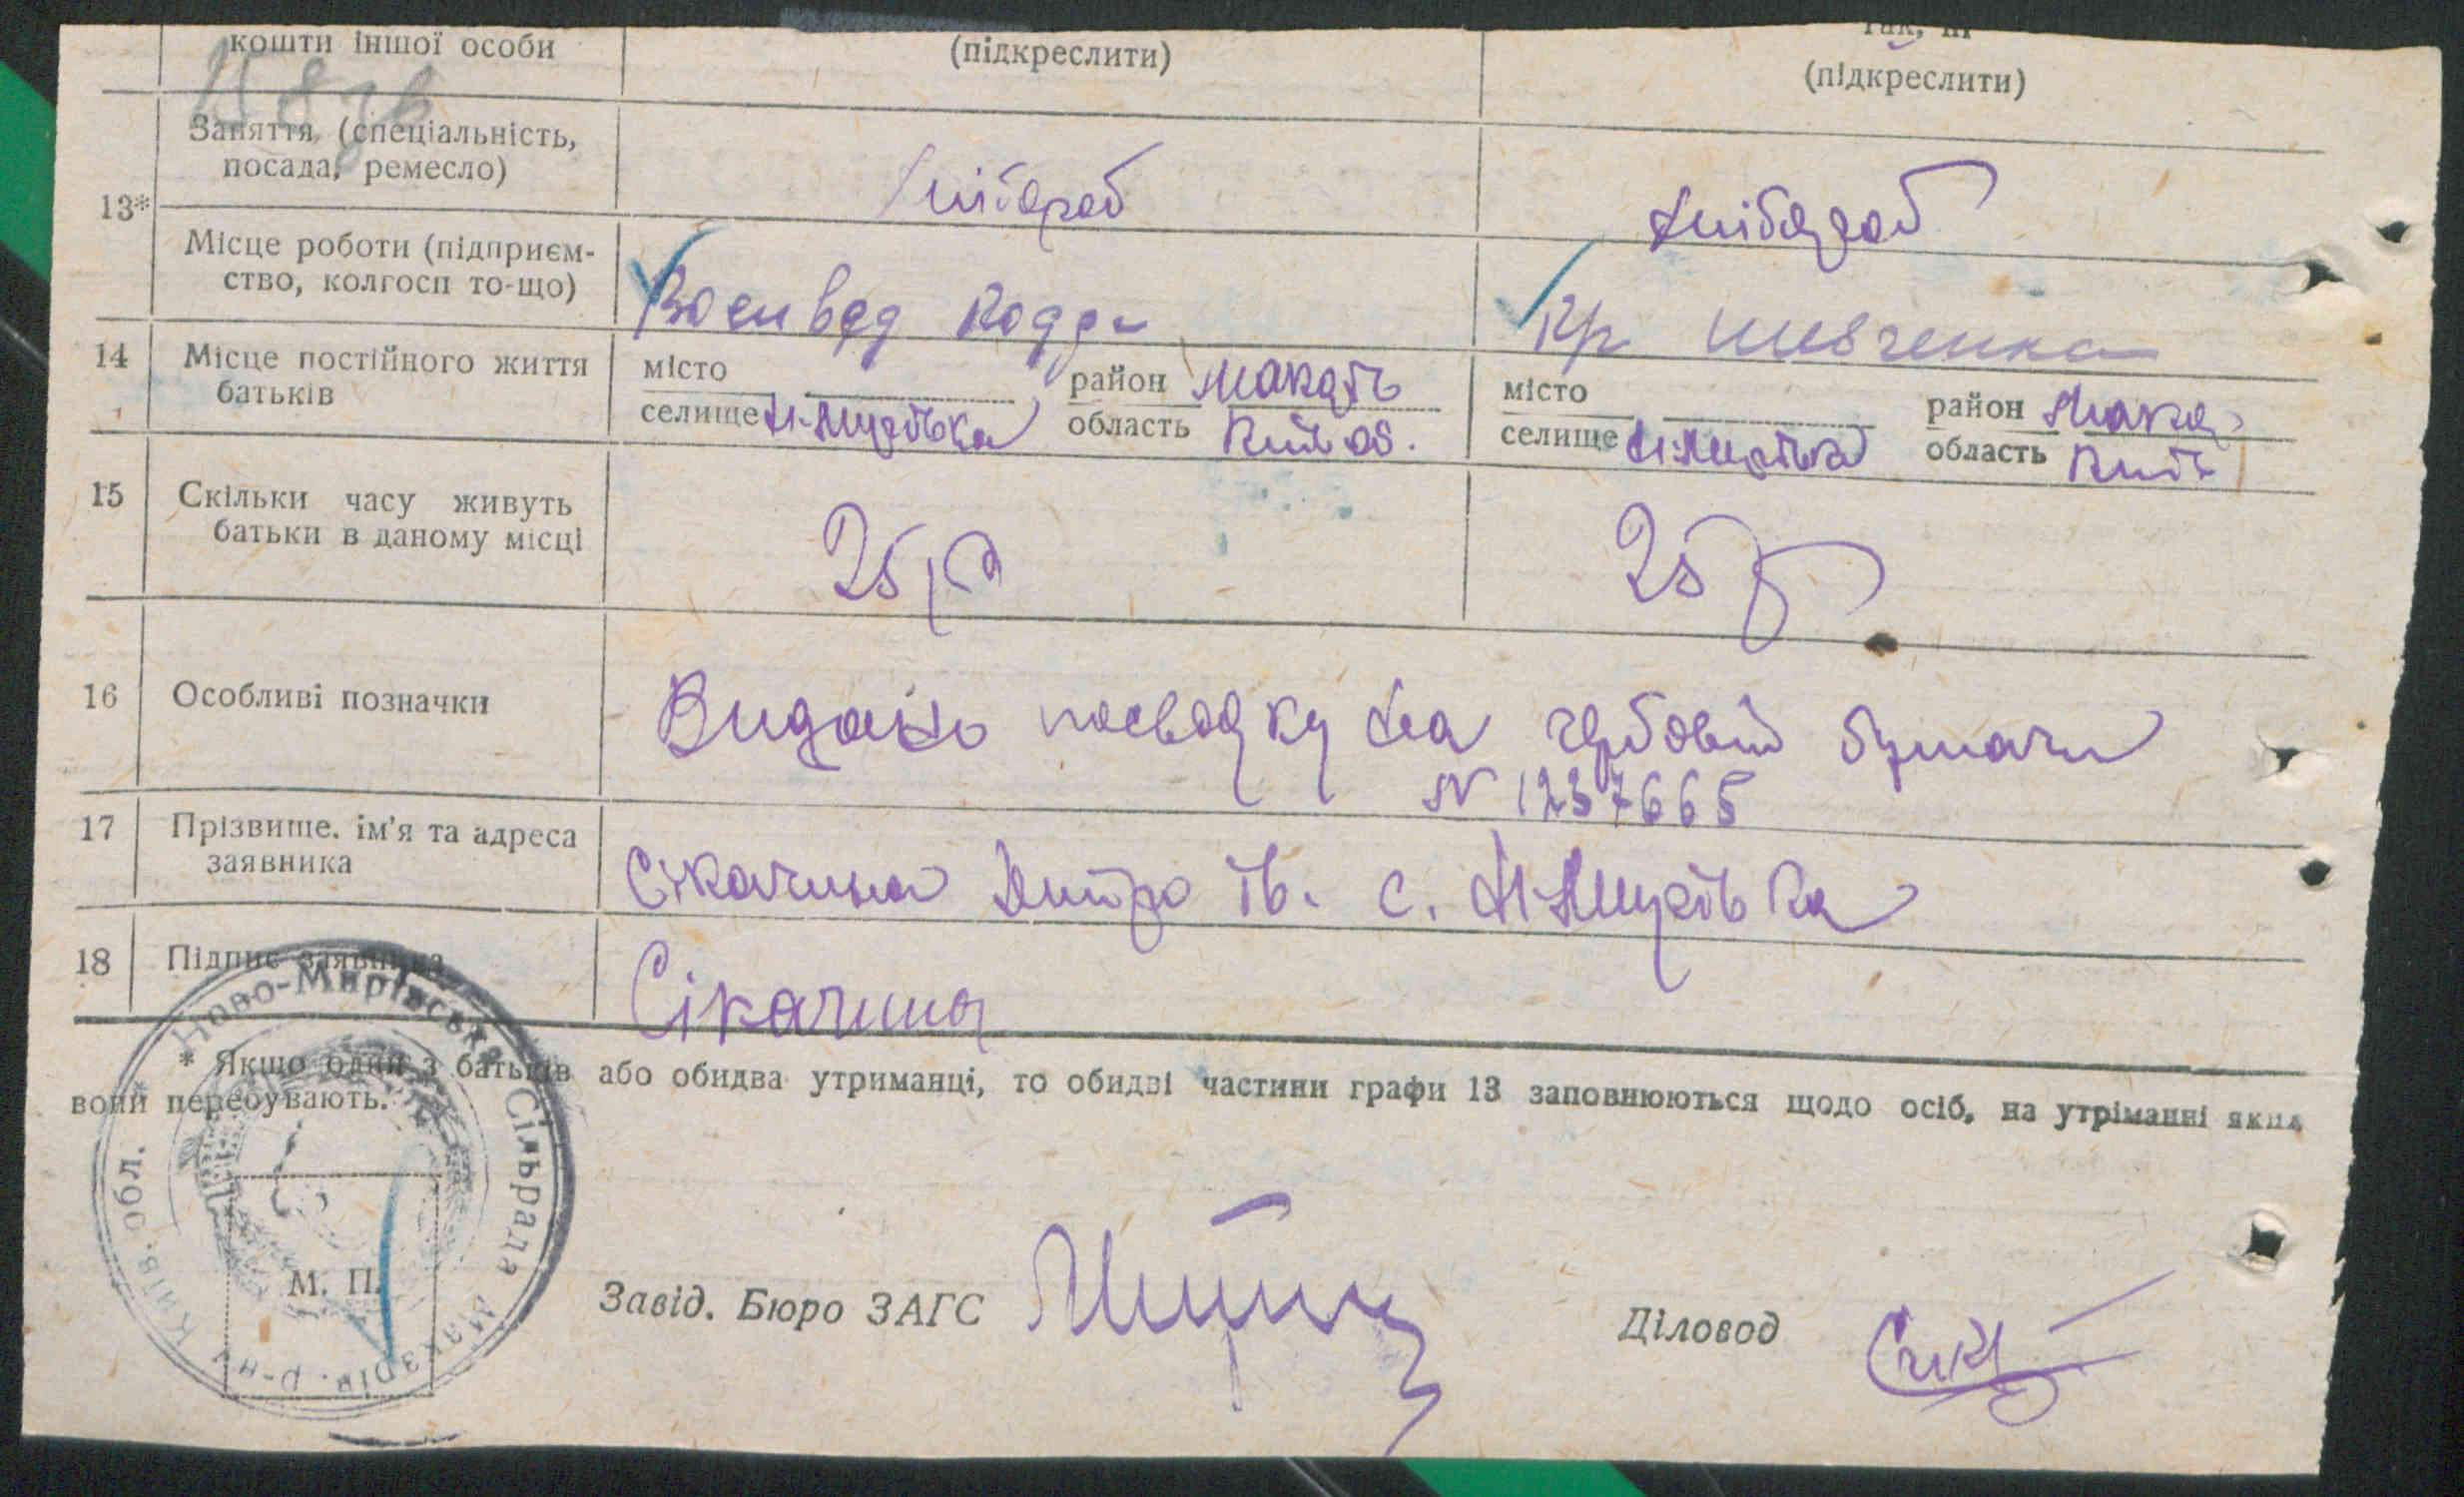 кошти іншої особи
(підкреслити)
(підкреслити)
13*
Заняття (спеціальність,
посада, ремесло)
хлібороб
хлібороб
Місце роботи (підприєм-
ство, колгосп то-що)
Воєнвед
Кр Шевченка
14
Місце постійного життя
батьків
місто
селище Н-Мирівка
район Макарів
область Київ об.
місто
селище Н-Мирівка
район Макар
область Київ
15
Скільки часу живуть
батьки в даному місці
25 р
25 р
16
Особливі позначки
Видано посвідку на гербовій бумазі
N 1237665
17
Прізвище, ім'я та адреса
заявника
Сікачина Дмитро Ів. с. Н-Мирівка
18
Підпис заявника
Сікачина
* Якщо один з батьків або обидва утриманці, то обидві частини графи 13 заповнюються щодо осіб, на утріманні яких
вони перебувають.
Ново-Мирівська Сільрада Макарів. р-на Київ. обл.
М. П.
Завід. Бюро ЗАГС
Діловод